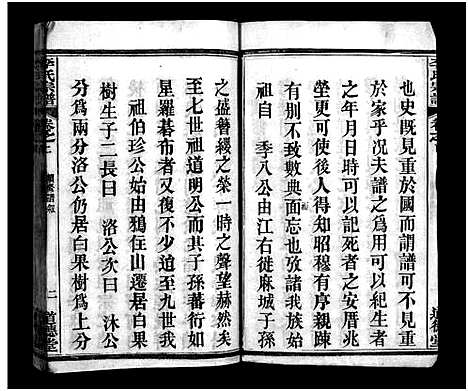 也史既見重於國而謂譜可不見重
於家乎况夫譜之為用可以紀生者
之年月日時可以記死者之安厝兆
塋更可使後人得知昭穆有序親踈
有別不致數典面忘也攷諸我族始
祖自　季八公由江右徙麻城子孫
之盛簪纓之榮一時之聲望赫然矣
至七世祖道明公而其子孫蕃衍如
星羅碁布者又復不少道至九世我
祖伯珍公始由鴉住山遷居白果
樹生子二長曰　洛公次曰　沐公
分為兩分洛公仍居白果樹為上分
李氏宗譜
卷之
二
道德堂